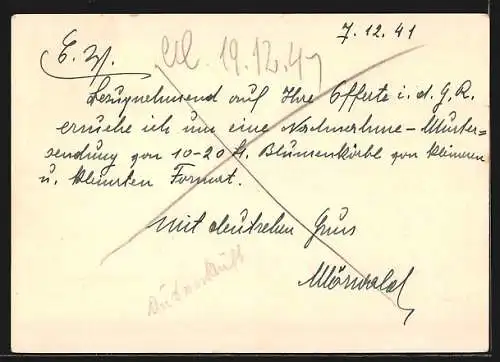 7.12.41
E. W.
19.12.41
Bezugnehmend auf Ihre Offerte i. d. G. R.
ersuche ich um eine Nachnahme-Muster=
sendung von 10-20 St. Blumenkörbl von kleinen
u. kleinsten Format.
Mit deutschen Gruss
Mörwald